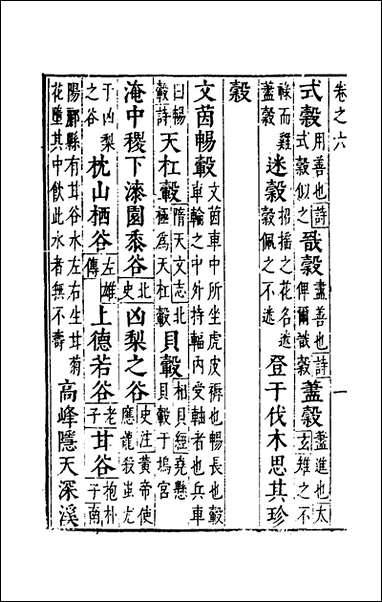 卷之六 一
式穀用善也詩式穀似之戩穀盡善也詩俾爾戩穀藎穀藎進也太玄雉之不
祿而雞藎穀迷穀招搖之花名迷穀佩之不迷登于伐木思其珍
穀
文茵暢轂文茵車中所坐虎皮褥也暢長也轂車輪之中外持輻内受軸者也兵車
曰暢轂詩天杠轂隋天文志北極爲天杠轂貝轂相貝經堯懸貝轂于塢宮
淹中稷下漆園黍谷北史凶梨之谷史注黃帝使應龍殺蚩尤
于凶梨之谷枕山栖谷左雄傳上德若谷老子甘谷抱朴子南
陽酈縣有甘谷水左右生甘菊花墮其中飲此水者無不壽高峰隱天深溪